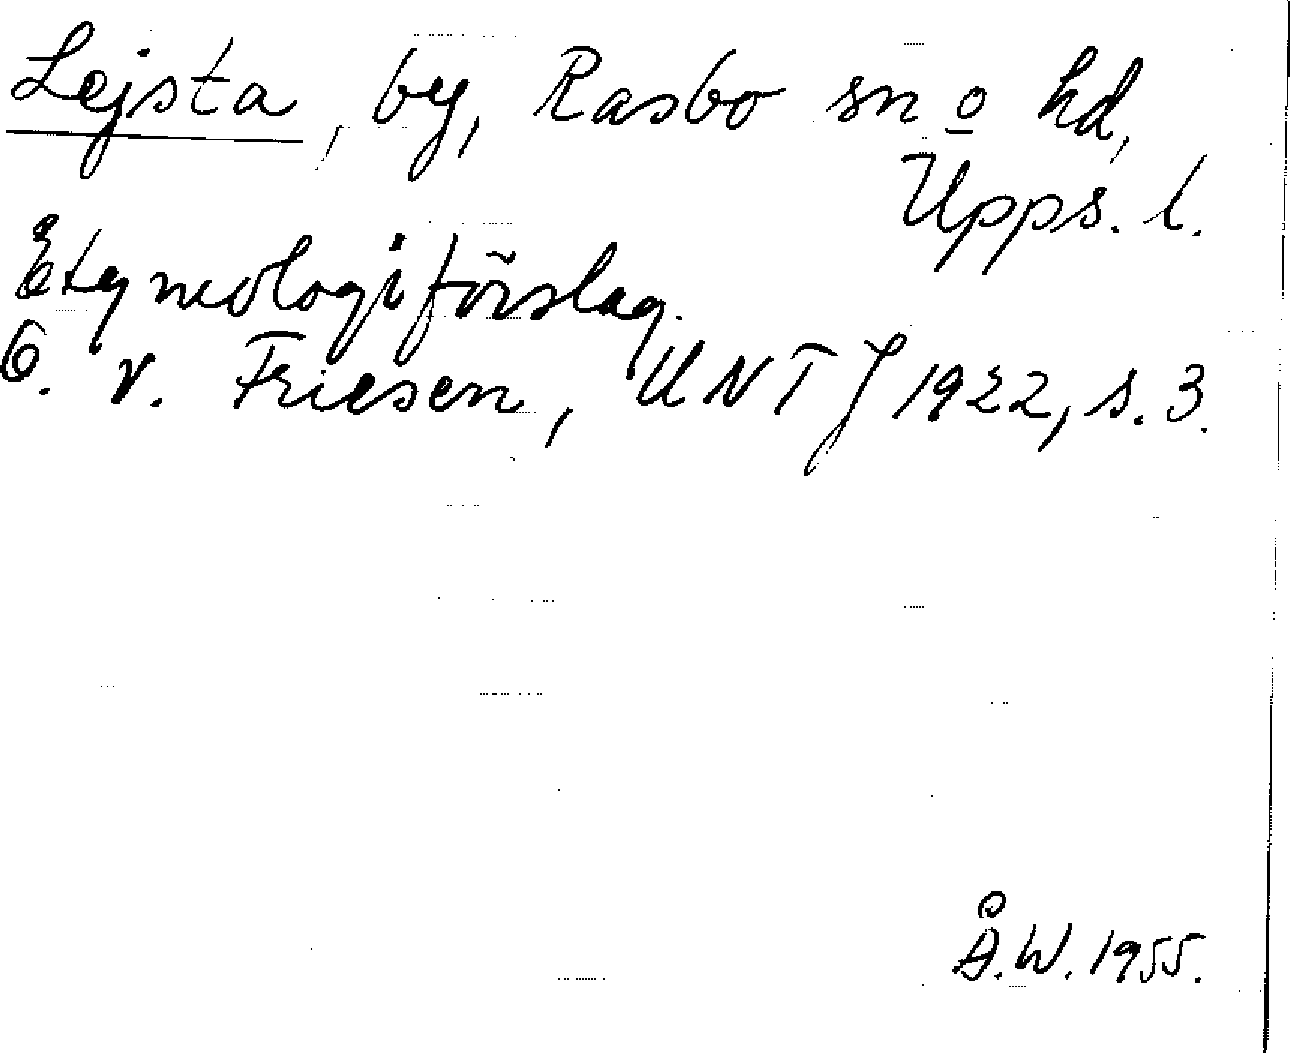 Lejsta, by, Rasbo sn o hd,
Upps. l.
Etymologiförslag.
O. v. Friesen, UNTJ 1922, s. 3.
Å.W. 1955.